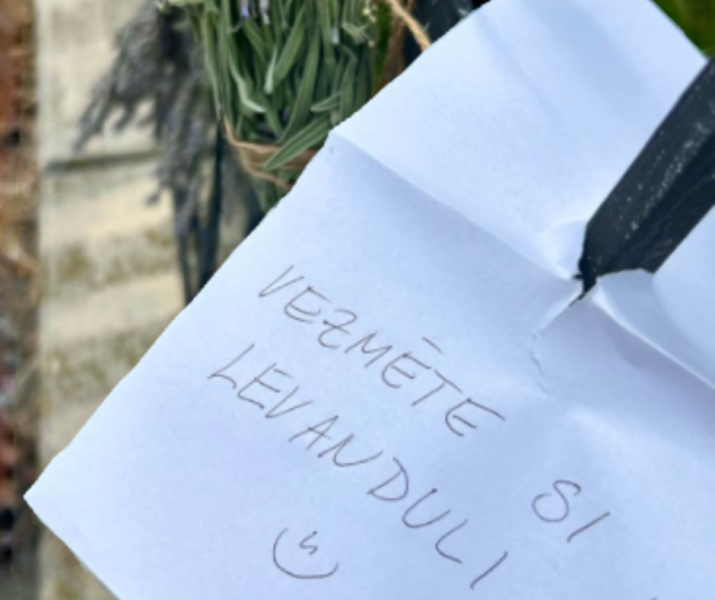 VEZMĚTE SI
LEVANDULI